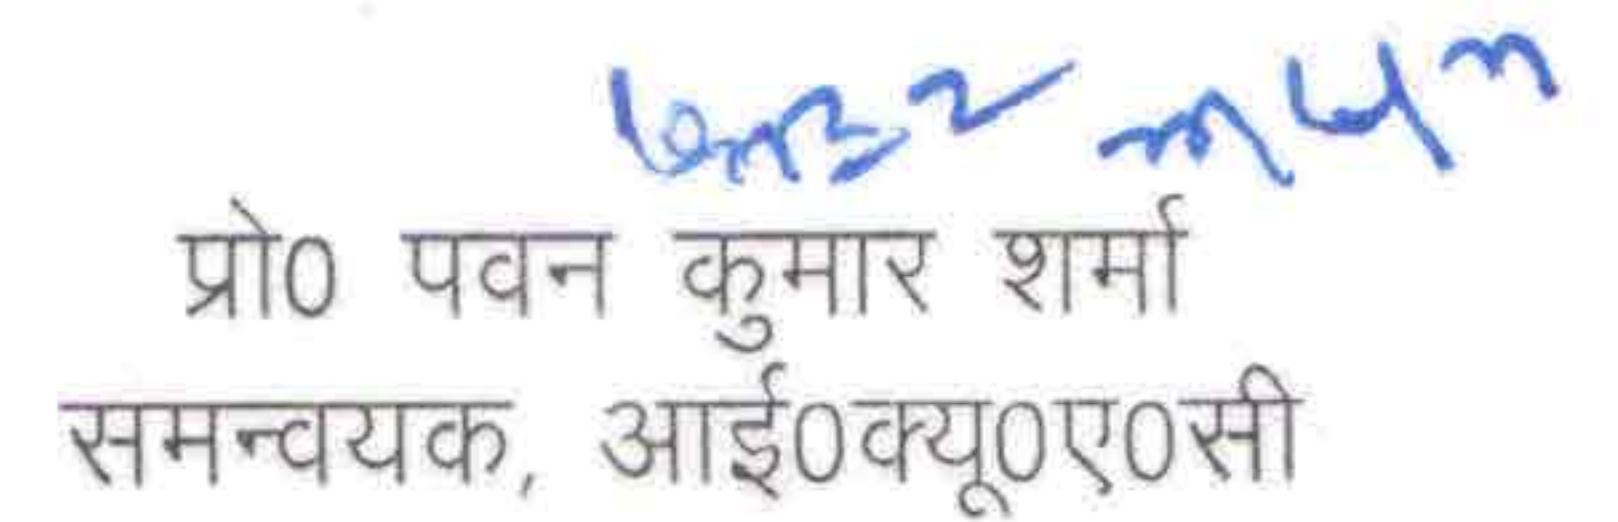 प्रो0 पवन कुमार शर्मा
समन्वयक, आई0क्यू0ए0सी